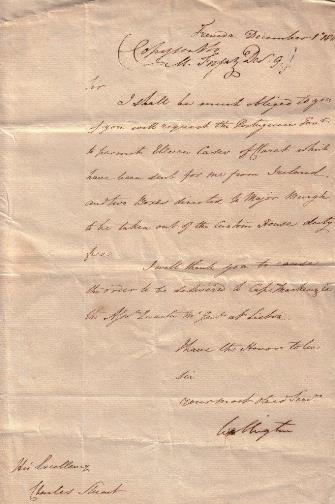 Freneda December 1st 18
(Copy sent to
M. Forjaz Dec 9.)
Sir
I shall be much obliged to you
if you will request the Portuguese Govt.
to permit Eleven Cases of Claret which
have been sent for me from Ireland
and two Boxes directed to Major Burgh
to be taken out of the Custom House duty
free.
I will thank you to cause
the order to be delivered to Capt. Mackenzie
the Asst Quarter Mr Genl. at Lisbon.
I have the Honor to be
Sir
your most obed Servt
Wellington
His Excellency
Charles Stuart